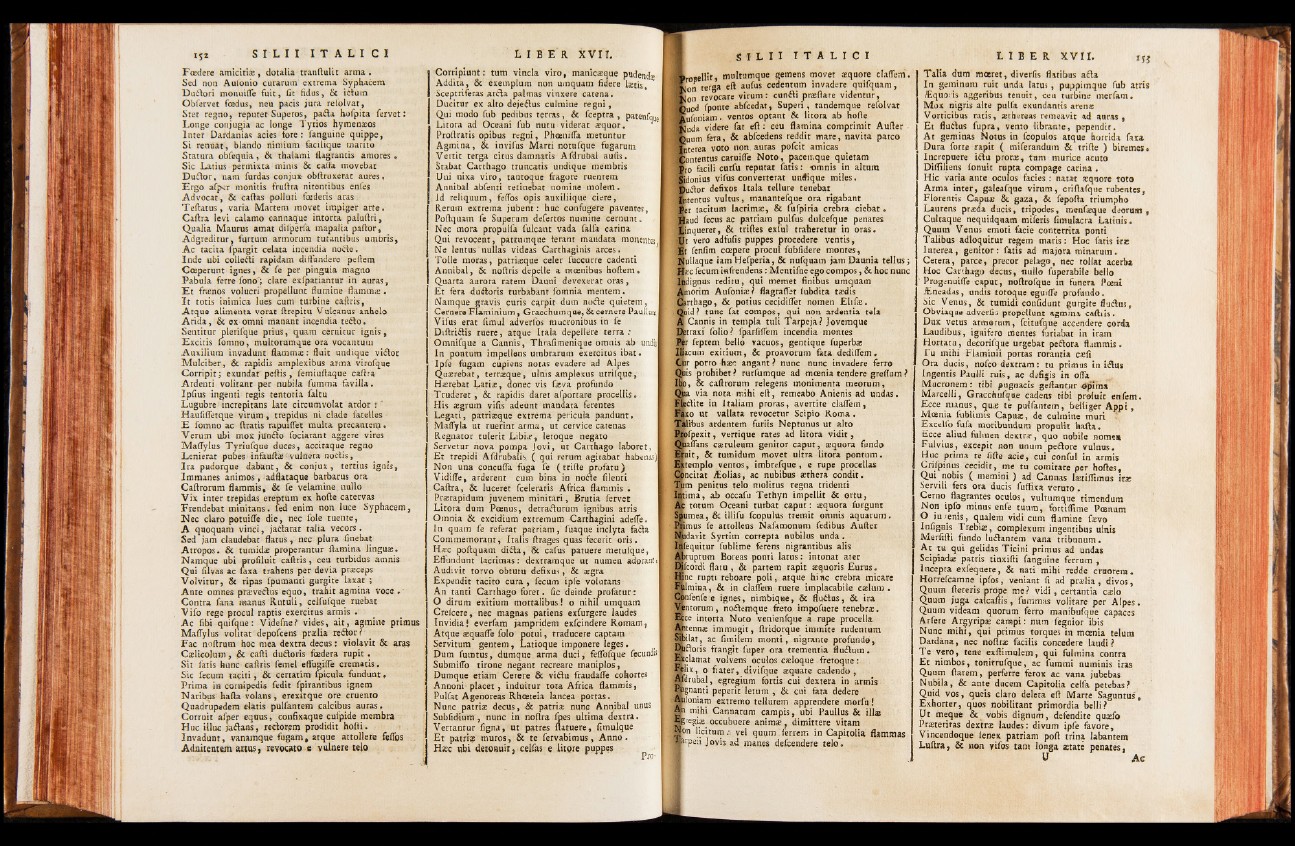 152 SILII ITALICI
Fœdere amicitiæ, dotalia tranſtulit arma.
Sed non Auſonio curarum extrema Syphacem
Ductori monuiſſe fuit, ſit fidus, & ictum
Obſervet fœdus, neu pacis jura reſolvat,
Stet regno, reputet Superos, pacta hoſpita ſervet:
Longe conjugia ac longe Tyrios hymenæos
Inter Dardanias acies fore: ſanguine quippe,
Si renuat, blando nimium facilique marito
Statura obſequia, & thalami flagrantis amores.
Sic Latius permixta minis & caſſa movebat
Ductor, nam ſurdas conjux obſtruxerat aures.
Ergo aſper monitis fruſtra nitentibus enſes
Advocat, & caſtas polluti fœderis aras
Teſtatus, varia Martem movet impiger arte.
Caſtra levi calamo cannaque intorta paluſtri,
Qualia Maurus amat diſperſa mapalia paſtor,
Adgreditur, furtum armorum tutantibus umbris,
Ac tacita ſpargit celata incendia nocte.
Inde ubi collecti rapidam diffundere peſtem
Cœperunt ignes, & ſe per pinguia magno
Pabula ferre ſono; clare exſpatiantur in auras,
Et fræenos volucri propellunt flumine flammæ.
It totis inimica lues cum turbine caſtris,
Atque alimenta vorat ſtrepitu Vulcanus anhelo
Arida, & ex omni manant incendia tecto.
Sentitur pleriſque prius, quam cernitur ignis,
Excitis ſomno, multorumque ora vocantum
Auxilium invadunt flammæ: fluit undique victor
Mulciber, & rapidis amplexibus arma viroſque
Corripit; exundat peſtis, ſemiuſtaque caſtra
Ardenti volitant per nubila ſumma favilla.
Ipſius ingenti regis tentoria ſaltu
Lugubre increpitans late circumvolat ardor:
Hauſiſſetque virum, trepidus ni clade ſatelles
E ſomno ac ſtratis rapuiſſet multa precantem.
Verum ubi mox juncto ſociarant aggere vires
Maſſylus Tyriuſque duces, accitaque regno
Lenierat pubes infauſtæ vulnera noctis,
Ira pudorque dabant, & conjux, tertius ignis,
Immanes animos, adflataque barbarus ora
Caſtrorum flammis, & ſe velamine nullo
Vix inter trepidas ereptum ex hoſte catervas
Frendebat minitans. ſed enim non luce Syphacem,
Nec claro potuiſſe die, nec ſole tuente,
A quoquam vinci, jactarat talia vecors.
Sed jam claudebat flatus, nec plura ſinebat
Atropos. & tumidæ properantur ſtamina linguæ.
Namque ubi profiluit caſtris, ceu turbidus amnis
Qui ſilvas ac ſaxa trahens per devia præceps
Volvitur, & ripas ſpumanti gurgite laxar;
Ante omnes prævectus equo, trahit agmina voce.
Contra fana manus Rutuli, celſuſque ruebat
Viſo rege procul raptis exercitus armis.
Ac ſibi quiſque: Videſne? vides, ait, agmine primus
Maſſylus volitat depoſcens prælia rector?
Fac noſtrum hoc mea dextra decus: violavit & aras
Cælicolum, & caſti ductoris fœdera rupit.
Sit ſatis hunc caſtris ſemel effugiſſe crematis.
Sic ſecum taciti, & certatim ſpicula fundunt.
Prima in cornipedis ſedit ſpirantibus ignem
Naribus haſta volans, erexitque ore cruento
Quadrupedem elatis pulſantem calcibus auras.
Corruit aſper equus, confixaque cuſpide membra
Huc illuc jactans, rectorem prodidit hoſti.
Invadunt, vanamque fugam, atque attollere feſſos
Adnitentem artus, revocato e vulnere telo
LIBER XVII.
Corripiunt: tum vincla viro, manicæque pudendæ
Addita, & exemplum non umquam fidere lætis,
Sceptriferas arcta palmas vinxere catena.
Ducitur ex alto dejectus culmine regni,
Qui modo ſub pedibus terras, & ſceptra, patenſque
Litora ad Oceani ſub nutu viderat æquor.
Proſtratis opibus regni, Phœniſſa metuntur
Agmina, & inviſus Marti notuſque fugarum
Vertit terga citus damnatis Aſdrubal auſis.
Stabat Carthago truncatis undique membris
Uni nixa viro, tantoque fragore ruentem
Annibal abſenti retinebat nomine molem.
Id reliquum, feſſos opis auxiliique ciere,
Rerum extrema jubent: huc confugere paventes,
Poſtquam ſe Superum deſertos numine cernunt.
Nec mora propulſa ſulcant vada ſalſa carina
Qui revocent, patrumque terant mandata monentes,
Ne lentus nullas videas Carthaginis arces.
Tolle moras, patriæque celer ſuccurre cadenti
Annibal, & noſtris depelle a mœnibus hoſtem.
Quarta aurora ratem Dauni devexerat oras,
Et fera ductoris turbabant ſomnia mentem.
Namque gravis curis carpit dum nocte quietem,
Cernere Flaminium, Gracchumque, & cernere Paullum
Viſus erat ſimul adverſos mucronibus in ſe
Diſtrictis ruere, atque Itala depellere terra:
Omniſque a Cannis, Thraſimenique omnis ab undis
In pontum impellens umbrarum exercitus ibat.
Ipſe fugam cupiens notas evadere ad Alpes
Quærebat, terræque, ulnis amplexus utriſque,
Hærebat Latiæ, donec vis ſæva profundo
Truderet, & rapidis daret aſportare procellis.
His ægrum viſis adeunt mandata ferentes
Legati, patriæque extrema pericula pandunt.
Maſſyla ut ruerint arma, ut cervice catenas
Regnator tulerit Libiæ, letoque negato
Servetur nova pompa Jovi, ut Carthago laboret,
Et trepidi Aſdrubalis (qui rerum agitabat habenas)
Non una concuſſa fuga ſe (triſte profatu)
Vidiſſe, arderent cum bina in nocte ſilenti
Caſtra, & luceret ſceleratis Africa flammis.
Prærapidum juvenem minitari, Brutia ſervet
Litora dum Pœnus, detracturum ignibus atris
Omnia & excidium extremum Carthagini adeſſe.
In quam ſe referat patriam, ſuaque inclyta facta
Commemorant, Italis ſtrages quas fecerit oris.
Hæc poſtquam dicta, & caſus patuere metuſque,
Effundunt lacrimas: dextramque ut numen adorant.
Audivit torvo obtutu defixus, & ægra
Expendit tacito cura, ſecum ipſe volotans
An tanti Carthago foret. ſic deinde profatur:
O dirum exitium mortalibus! o nihil umquam
Creſcere, nec magnas patiens exſurgere laudes
Invidia! everſam jampridem exſcindere Romam,
Atque æquaſſe ſolo potui, traducere captam
Servitum gentem, Latioque imponere leges.
Dum ſumtus, dumque arma duci, feſſoſque ſecundis
Submiſſo tirone negant recreare maniplos,
Dumque etiam Cerere & victu fraudaſſe cohortes
Annoni placet, induitur tota Africa flammis,
Pulſat Agenoreas Rhœteia lancea portas.
Nunc patriæ decus, & patriæ nunc Annibal unus
Subſidium, nunc in noſtra ſpes ultima dextra.
Vertantur ſigna, ut patres ſtatuere, ſimulque
Et patriæ muros, & te ſervabimus, Anno.
Hæc ubi detonuit, celſas e litore puppes
Pro-
SILII ITALICI
Propellit, multumque gemens movet æquore claſſem.
Non terga eſt auſus cedentum invadere quiſquam,
Non revocare virum: cuncti præſtare videntur,
Quod ſponte abſcedat, Superi, tandemque reſolvat
Auſoniam. ventos optant & litora ab hoſte
Nuda videre ſat eſt: ceu flamina comprimit Auſter
Quum fera, & abſcedens reddit mare, navita parco
Interea voto non auras poſcit amicas
Contentus caruiſſe Noto, pacemque quietam
Pro facili curſu reputat ſatis: omnis in altum
Sidonius viſus converterat undique miles.
Ductor defixos Itala tellure tenebat
Intentus vultus, manantéſque ora rigabant
Per tacitum lacrimæ, & ſuſpiria crebra ciebat.
Haud ſecus ac patriam pulſus dulceſque penates
Linqueret, & triſtes exſul traheretur in oras.
Ut vero adfuſis puppes procedere ventis,
Et ſenſim cœpere procul ſubſidere montes,
Nullaque jam Heſperia, & nuſquam jam Daunia tellus;
Hæc ſecum infrendens: Mentiſne ego compos, & hoc nunc
Indignus reditu, qui memet finibus umquam
Amorim Auſoniæ? flagraſſet ſubdita tædis
Carthago, & potius cecidiſſet nomen Eliſſæ.
Quid? tunc ſat compos, qui non ardentia tela
A Cannis in templa tuli Tarpeja? Jovemque
Detraxi ſolio? ſparſiſſem incendia montes
Per ſeptem bello vacuos, gentique ſuperbæ
Iliacum exitium, & proavorum fata dediſſem.
Cur porro hæc angant? nunc nunc invadere ferro
Quis prohibet? rurſumque ad mœnia tendere greſſum?
Ibo, & caſtrorum relegens monimenta meorum,
Qua via nota mihi eſt, remeabo Anienis ad undas.
Flectite in Italiam proras, avertite claſſem,
Faxo ut vallata revocetur Scipio Roma.
Talibus ardentem furiis Neptunus ut alto
Proſpexit, vertique rates ad litora vidit,
Quaſſans cæruleum genitor caput, æquora fundo
Eruit, & tumidum movet ultra litora pontum.
Extemplo ventos, imbreſque, e rupe procellas
Concitat Æolias, ac nubibus æthera condit.
Tum penitus telo molitus regna tridenti
Intima, ab occaſu Tethyn impellit & ortu,
Ac totum Oceani turbat caput: æquora ſurgunt
Spumea, & illiſu ſcopulus tremit omnis aquarum.
Primus ſe attollens Naſamonum ſedibus Auſter
Nudavit Syrtim correpta nubilus unda.
Inſequitur ſublime ferens nigrantibus alis
Abruptum Boreas ponti latus: intonat ater
Diſcordi flatu, & partem rapit æquoris Eurus.
Hinc rupti reboare poli, atque hinc crebra micare
Fulmina, & in claſſem ruere implacabile cælum.
Conſenſe e ignes, nimbique, & fluctus, & ira
Ventorum, noctemque freto impoſuere tenebræ.
Ecce intorta Noto venienſque a rupe procella
Antennæ immugit, ſtridorque immite rudentum
Sibilat, ac ſimilem monti, nigrante profundo,
Ductoris frangit ſuper ora trementia fluctum.
Exclamat volvens oculos cæloque fretoque:
Felix, o frater, diviſque æquate cadendo,
Aſdrubal, egregium fortis cui dextera in armis
Pugnanti peperit letum, & cui fata dedere
Auſoniam extremo tellurem apprendere morſu!
An mihi Cannarum campis, ubi Paullus & illæ
Egregiæ occubuere animæ, dimittere vitam
Non licitum: vel quum ferrem in Capitolia flammas
Tarpeii Jovis ad manes deſcendere telo.
LIBER XVII. 153
Talia dum mœret, diverſis flatibus acta
In geminum ruit unda latus, puppimque ſub atris
Æquoris aggeribus tenuit, ceu turbine merſam.
Mox nigris alte pulſa exundantis arenæ
Vorticibus ratis, æthereas remeavit ad auras,
Et fluctus ſupra, vento librante, pependit.
At geminas Notus in ſcopulos atque horrida ſaxa
Dura ſorte rapit (miſerandum & triſte) biremes.
Increpuere ictu proræ, tum murice acuto
Diſſiliens ſonuit rupta compage carina.
Hic varia ante oculos facies: natat æquore toto
Arma inter, galeaſque virum, criſtaſque rubentes,
Florentis Capuæ & gaza, & ſepoſta triumpho
Laurens præda ducis, tripodes, menſæque deorum,
Cultaque nequidquam miſeris ſimulacra Latinis.
Quum Venus emoti facie conterrita ponti
Talibus adloquitur regem maris: Hoc ſatis iræ
Interea, genitor: ſatis ad majora minarum.
Cetera, parce, precor pelago, nec tollat acerba
Hoc Carthago decus, nullo ſuperabile bello
Progenuiſſe caput, noſtroſque in funera Pœni
Æneadas, undis totoque eguiſſe profundo.
Sic Venus, & tumidi conſidunt gurgite fluctus,
Obviaque adverſis propellunt agmina caſtris.
Dux vetus armorum, ſcituſque accendere corda
Laudibus, ignifero mentes furiabat in iram
Hortatu, decoriſque urgebat pectora flammis.
Tu mihi Flaminii portas rorantia cæſi
Ora ducis, noſco dextram: tu primus in ictus
Ingentis Paulli ruis, ac defigis in oſſa
Mucronem: tibi pugnacis geſtantur opima
Marcelli, Gracchuſque cadens tibi proluit enſem.
Ecce manus, quæ te pulſantem, belliger Appi,
Mœnia ſublimis Capuæ, de culmine muri
Excelſo fuſa moribundum propulit haſta.
Ecce aliud fulmen dextræ, quo nobile nomen
Fulvius, excepit non unum pectore vulnus.
Huc prima te ſiſte acie, cui conſul in armis
Criſpinus cecidit, me tu comitare per hoſtes,
Qui nobis (memini) ad Cannas lætiſſimus iræ
Servili fers ora ducis ſuffixa veruto.
Cerno flagrantes oculos, vultumque timendum
Non ipſo minus enſe tuum, fortiſſime Pœnum
O juvenis, qualem vidi cum flumine ſævo
Inſignis Trebiæ, complexum ingentibus ulnis
Merſiſti fundo luctantem vana tribunum.
At tu qui gelidas Ticini primus ad undas
Scipiadæ patris tinxiſti ſanguine ferrum,
Incepta exſequere, & nati mihi redde cruorem.
Horreſcamne ipſos, veniant ſi ad prælia, divos,
Quum ſteteris prope me? vidi, certantia cælo
Quum juga calcaſtis, ſummas volitare per Alpes.
Quum videam quorum ferro manibuſque capaces
Arſere Argyripæ campi: num ſegnior ibis
Nunc mihi, qui primus torques in mœnia telum
Dardana, nec noſtræ facilis concedere laudi?
Te vero, tene exſtimulem, qui fulmina contra
Et nimbos, tonitruſque, ac ſummi numinis iras
Quum ſtarem, perferre ferox ac vana jubebas
Nubila, & ante ducem Capitolia celſa petebas?
Quid vos, queis claro deleta eſt Marte Saguntus,
Exhorter, quos nobilitant primordia belli?
Ut meque & vobis dignum, defendite quæſo
Præteritas dextræ laudes: divum ipſe favore,
Vincendoque ſenex patriam poſt trina labantem
Luſtra, & non viſos tam longa ætate penates,
U Ac